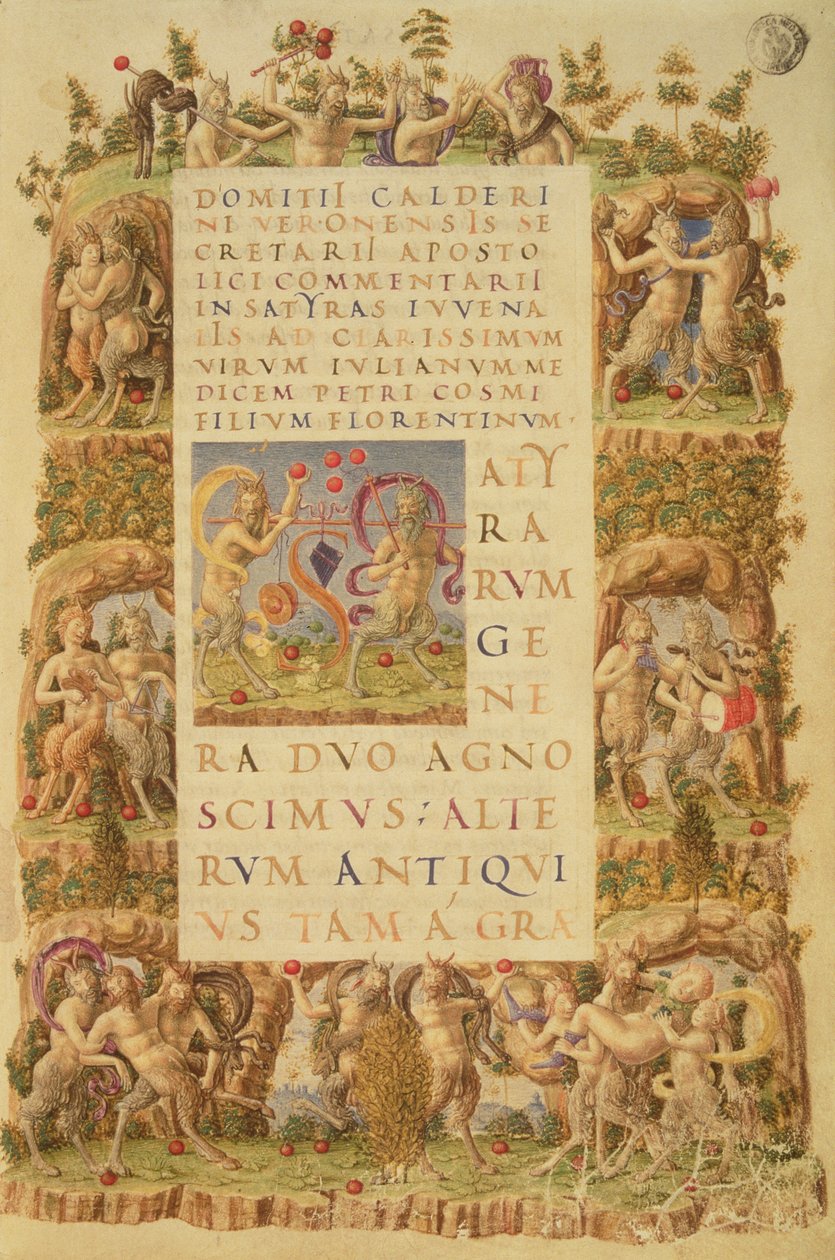 DOMITII CALDERI
NI VERONENSIS SE
CRETARII APOSTO
LICI COMMENTARII
IN SATYRAS IVVENA
LIS AD CLARISSIMVM
VIRVM IVLIANVM ME
DICEM PETRI COSMI
FILIVM FLORENTINVM.
S
ATY
RA
RVM
GE
NE
RA DVO AGNO
SCIMVS: ALTE
RVM ANTIQVI
VS TAM Á GRÆ